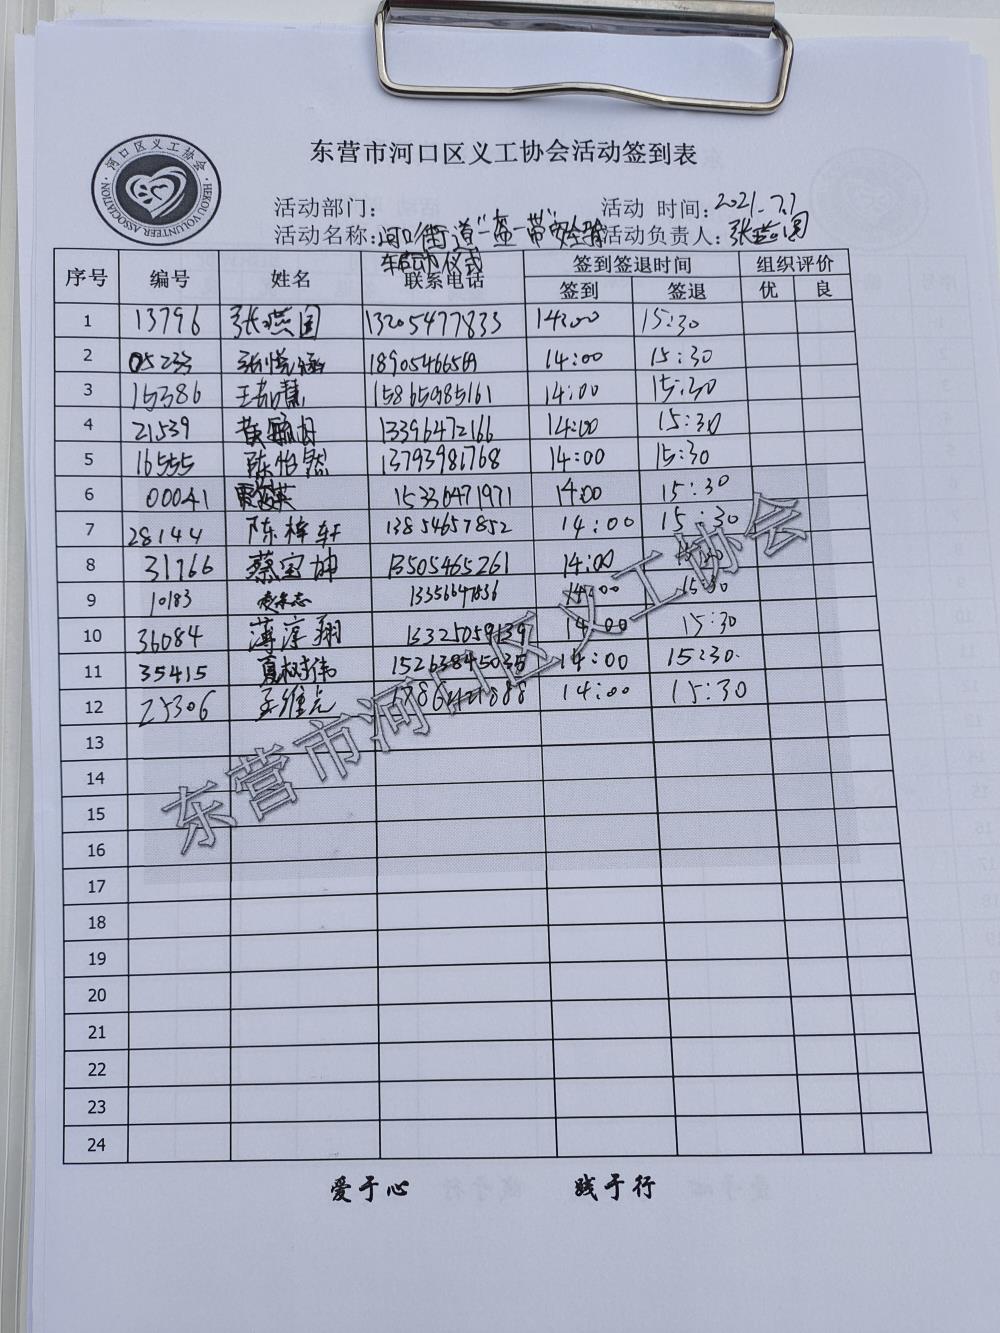 东营市河口区义工协会活动签到表
河口区义工协会
HEKOU VOLUNTEER ASSOCIATION
活动部门： 活动 时间：2021.7.1
活动名称：河口街道“一盔一带”安全骑 活动负责人：张燕国
车启动仪式
序号 编号 姓名 联系电话 签到签退时间 组织评价
签到 签退 优 良
1 13796 张燕国 13205477833 14:00 15:30
2 05233 张悦涵 14:00 15:30
3 15386 王 慧 15865985161 14:00 15:30
4 21539 黄 13396472166 14:00 15:30
5 16555 陈怡然 13793981768 14:00 15:30
6 00041 英 15336471971 14:00 15:30
7 28144 陈梓轩 13854657852 14:00 15:30
8 31766 蔡宝坤 13505465261 14:00 15:30
9 10183 14:00 15:30
10 36084 薄淳翔 13325059139 14:00 15:30
11 35415 夏树伟 15263845035 14:00 15:30
12 25306 孟维元 14:00 15:30
13
14
15
16
17
18
19
20
21
22
23
24
东营市河口区义工协会
爱于心 践于行